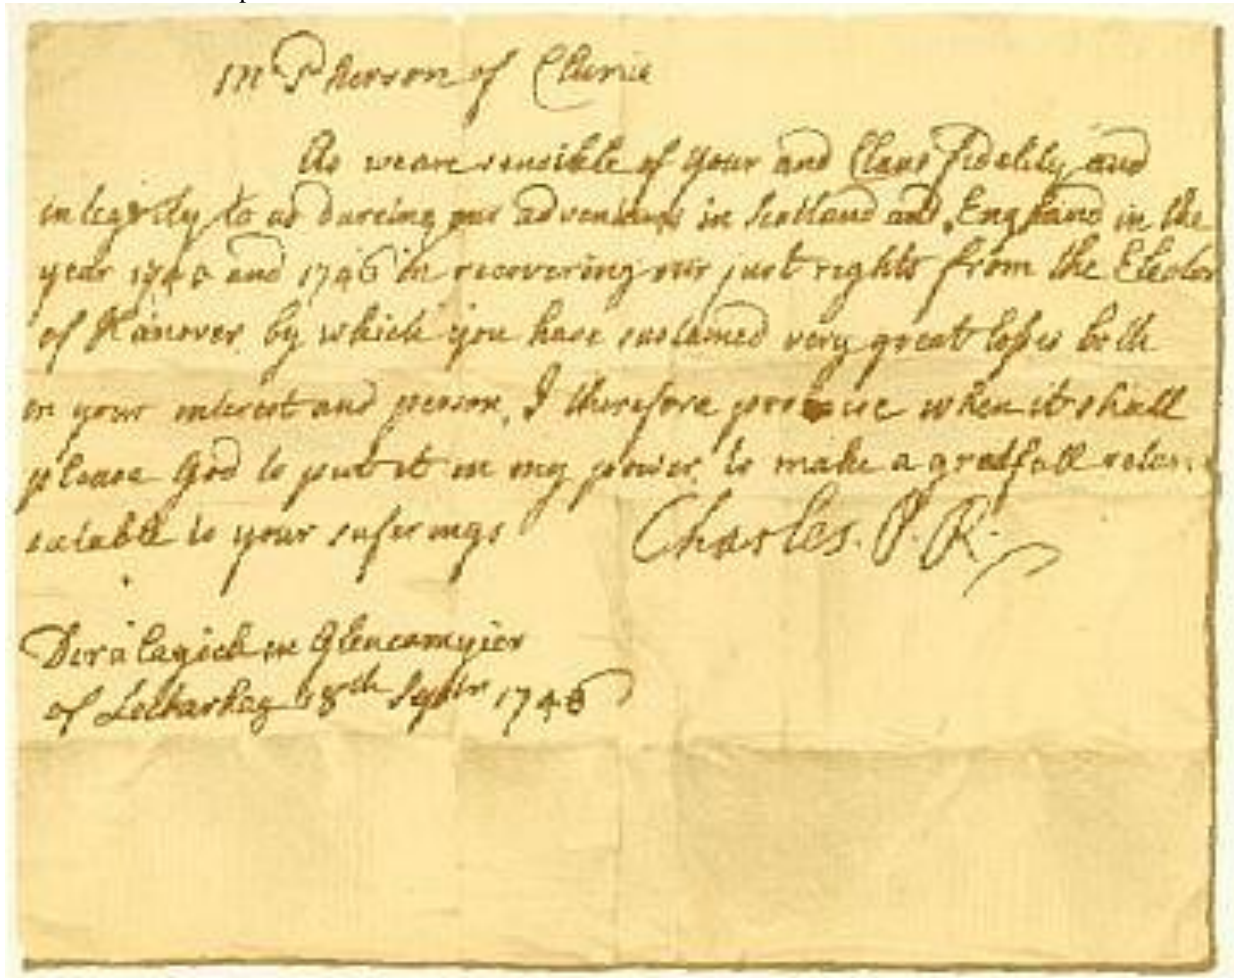 McPherson of Clunie
As we are sensible of your and Clans fidelity and
integrity to us dureing our adventures in Scotland and England in the
year 1745 and 1746 in recovering our just rights from the Elector
of Hanover by which you have sustained very great losses both
in your interest and person, I therefore promise when it shall
please God to put it in my power to make a gratfull
sutable to your suferings
Charles. P. R.
in
of 18th Septbr 1746